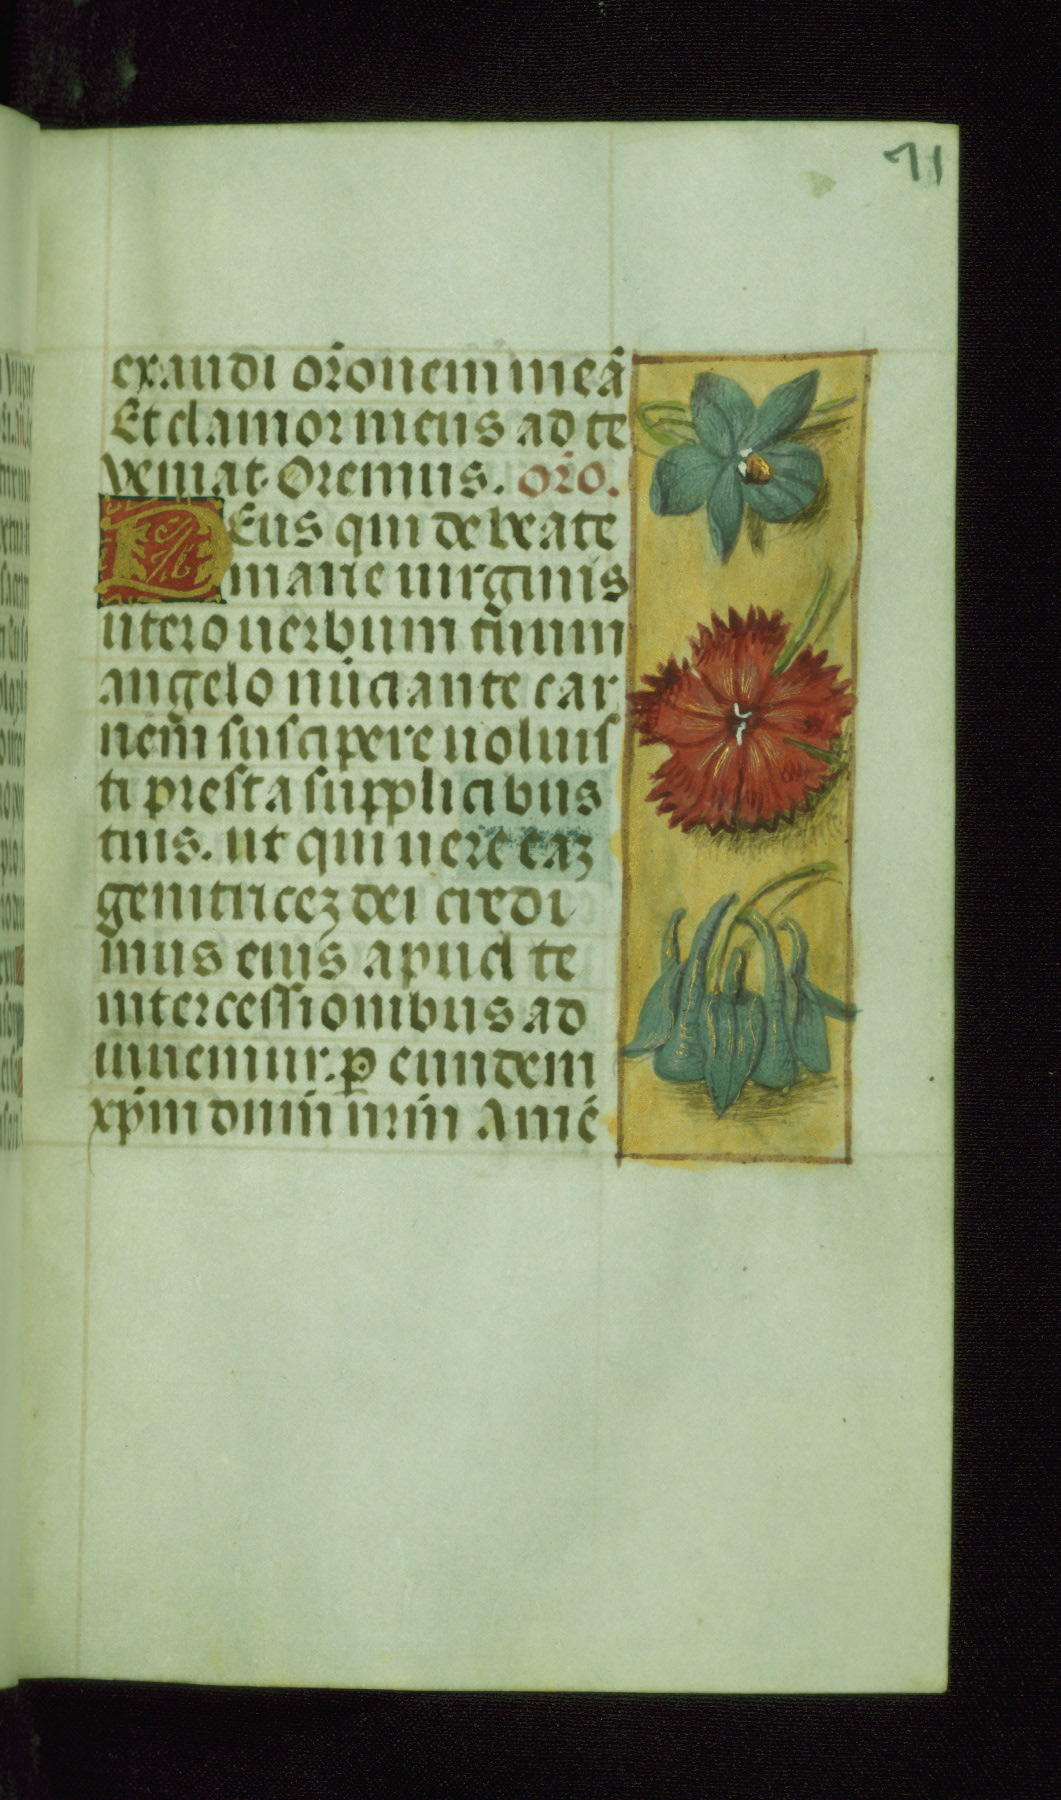 71
exaudi or̄onem meā
Et clamor meus ad te
veniat. Oremus. or̄o.
DEus qui de beate
marie uirginis
utero uerbum tuum
angelo nūciante car
nem suscipere uoluis
ti presta supplicibus
tuis. ut qui uere eaꝫ
genitriceꝫ dei credi
mus eius apud te
intercessionibus ad
iuuemur. ꝑ eundem
xp̄m dn̄m nr̄m Amē